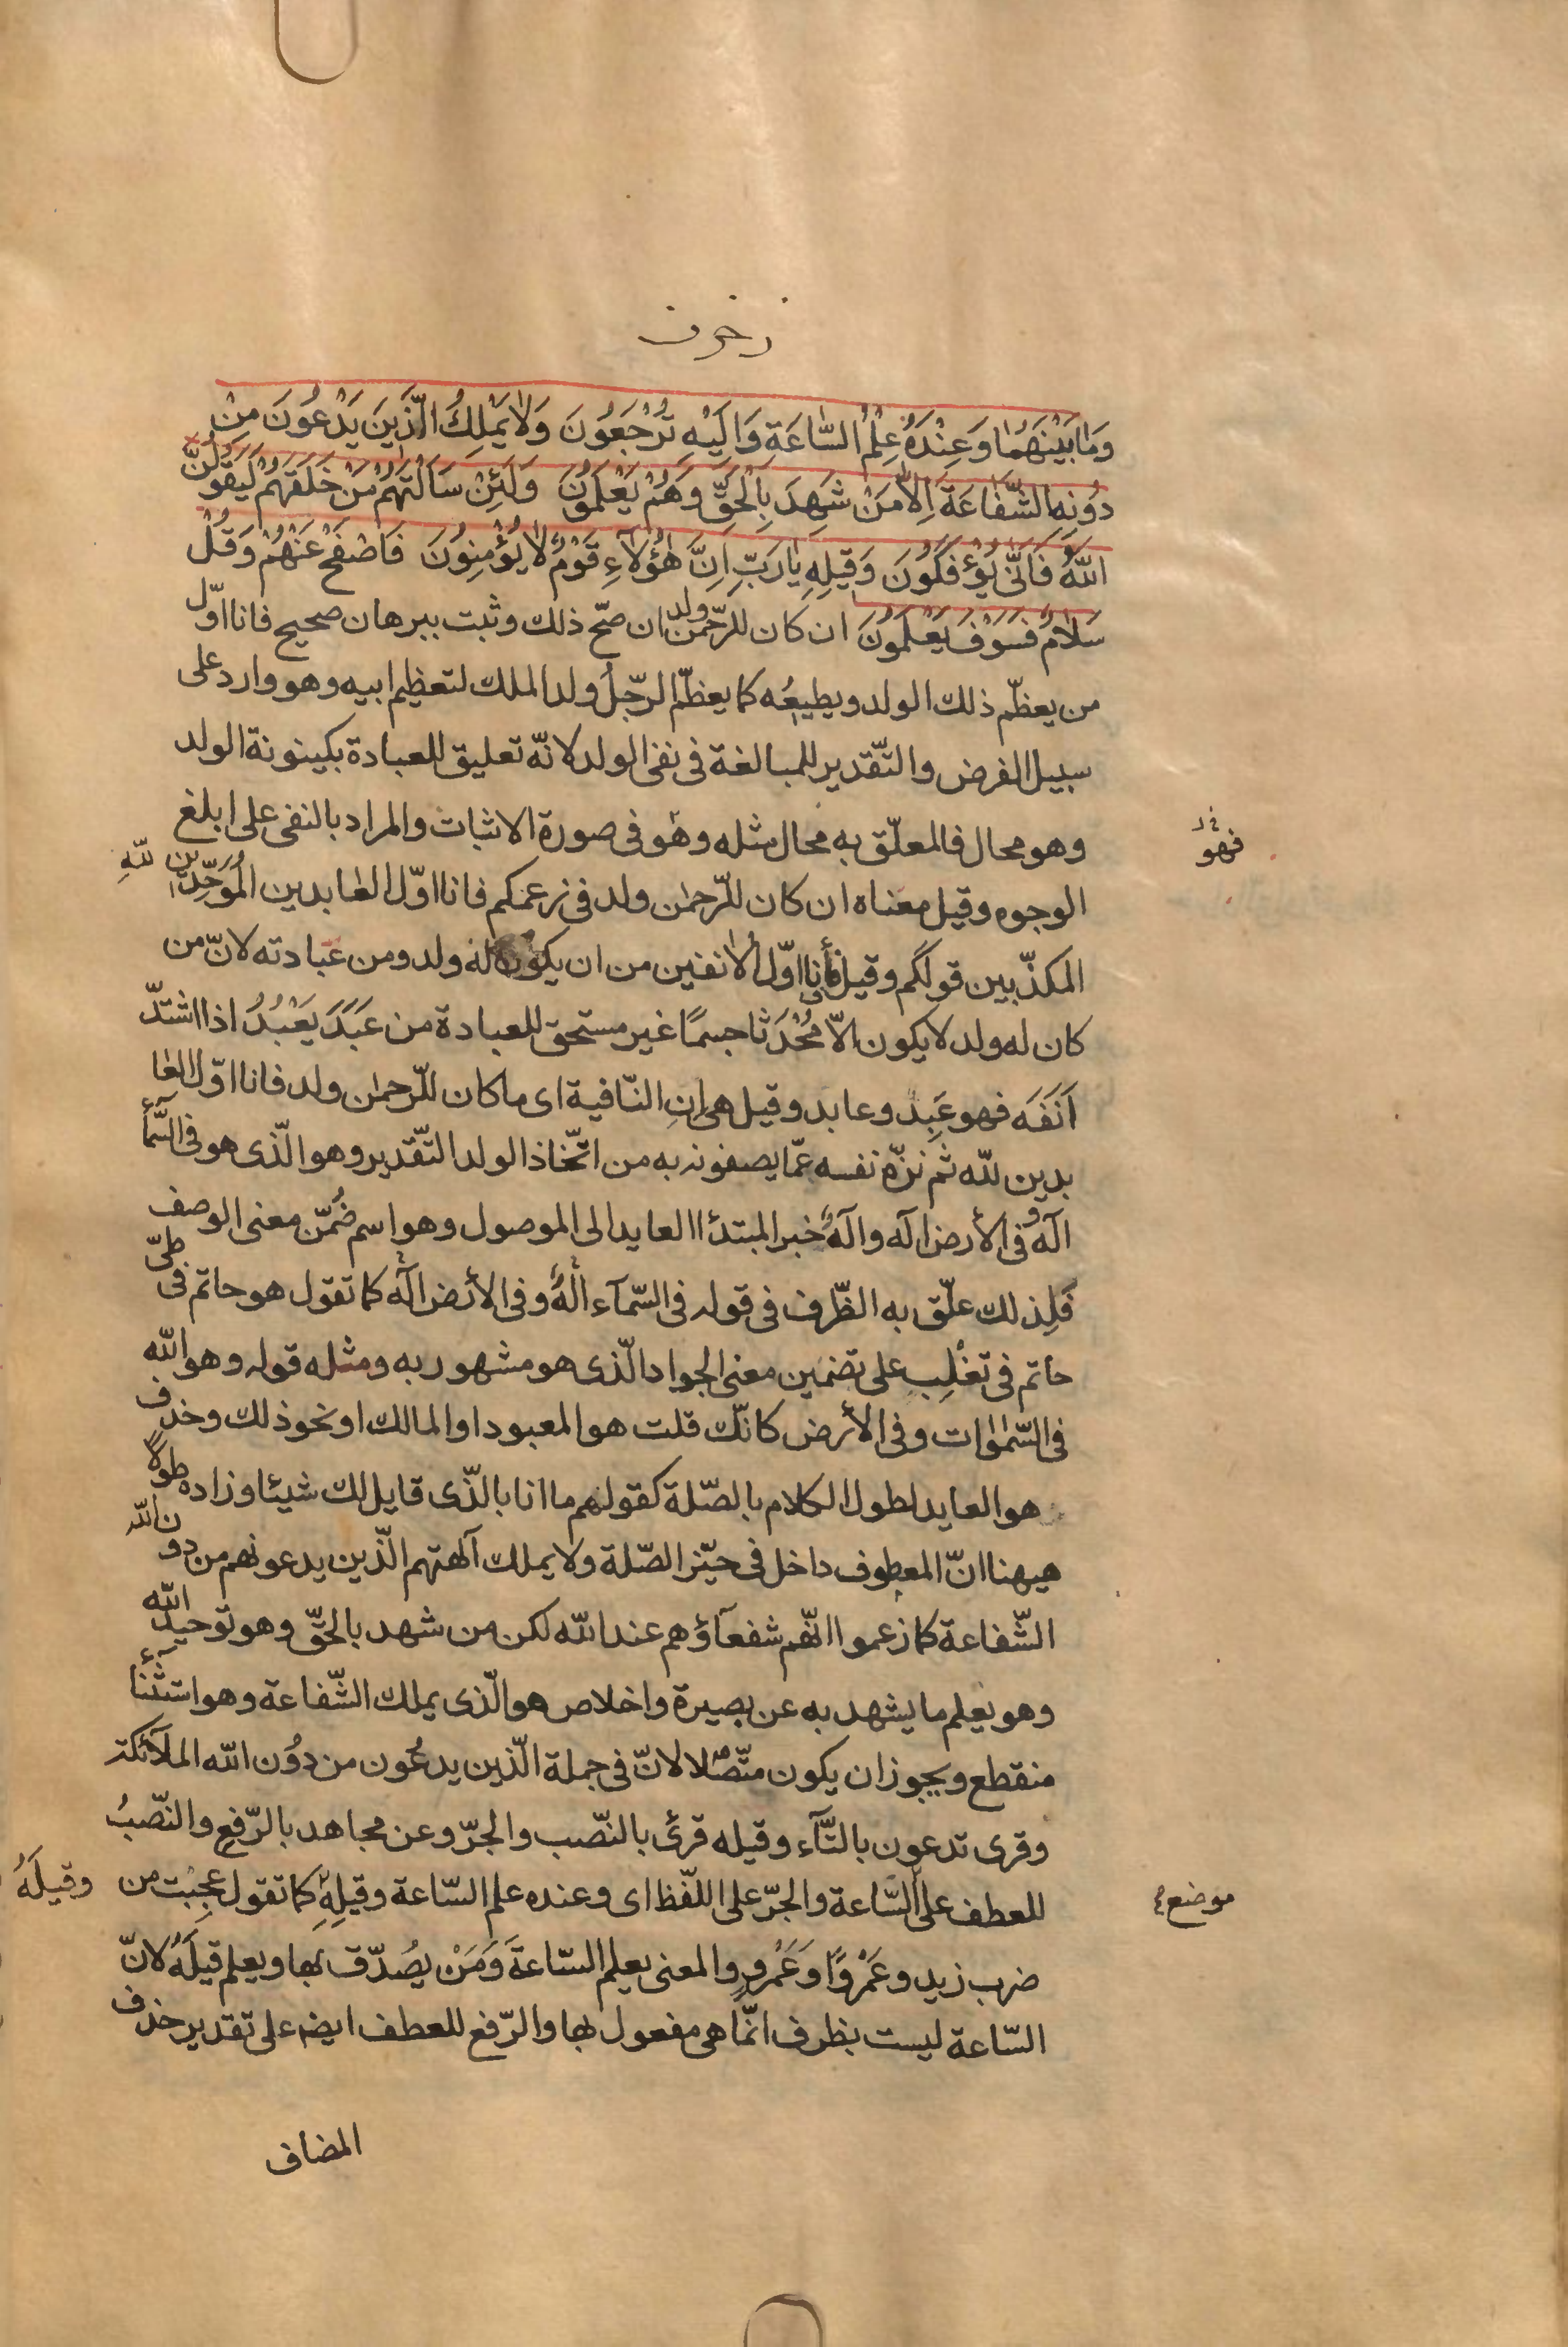 زخرف
وَمٰا بَيْنَهُمٰا وَعِنْدَهُ عِلْمُ السّٰاعَةِ وَاِلَيْهِ تُرْجَعُونَ وَلٰا يَمْلِكُ الَّذينَ يَدْعُونَ مِنْ
دُونِهِ الشَّفٰاعَةَ اِلّٰا مَنْ شَهِدَ بِالْحَقِّ وَهُمْ يَعْلَمُونَ وَلَئِنْ سَاَلْتَهُمْ مَنْ خَلَقَهُمْ لَيَقُولُنَّ
اللّٰهُ فَاَنّٰى يُؤْفَكُونَ وَقيلِهِ يٰا رَبِّ اِنَّ هٰؤُلٰاءِ قَوْمٌ لٰا يُؤْمِنُونَ فَاصْفَحْ عَنْهُمْ وَقُلْ
سَلٰامٌ فَسَوْفَ يَعْلَمُونَ ان كان للرّحمن ولد ان صحّ ذلك وثبت ببرهان صحيح فانا اوّل
من يعظّم ذلك الولد ويطيعُه كما يعظّم الرّجلُ ولد الملك لتعظيم ابيه وهو وارد على
سبيل الفرض والتّقدير للمبالغة فى نفى الولد لانّه تعليق للعبادة بكينونة الولد
وهو محال فالمعلّق به محال مثله وهو فى صورة الاثبات والمراد بالنفى على ابلغ
فهو
الوجوه وقيل معناه ان كان للرّحمٰن ولد فى زعمكم فانا اوّل العٰابدين المُوَحِّدين للّهِ
المكذّبين قولكم وقيل فأنا اوّل الٰانفين من ان يكون له ولد ومن عبادته لانّ من
كان له ولد لا يكون الّا مُحْدَثا جسمًا غير مستحقّ للعبادة من عَبَدَ يَعْبُدُ اذا اشتدّ
اَنَفَه فهو عَبِد وعابد وقيل هى اِنِ النّافية اى ما كان للّرحمٰن ولد فانا اوّل العٰا
بدين للّه ثم نزّه نفسه عمّا يصفونه به من اتّخاذ الولد التّقدير وهو الّذى هو فى السّمآء
آلهٌ وفى الأرض آله وآلهٌ خبر المبتدأ العايد الى الموصول وهو اسم ضُمّن معنى الوصف
فَلِذلك علّق به الظّرف فى قوله فى السّمآء الٰهٌ وفى الأرض آلهٌ كما تقول هو حاتم فى طىّ
حاتم فى تغْلِب على تضمين معنى الجواد الّذى هو مشهور به ومثله قوله وهو اللّه
فى السّمٰوٰات وفى الأرض كانّك قلت هو المعبود او المالك او نحو ذلك وحذف
هو العايد لطول الكلام بالصّلة كقولهم ما انا بالّذى قايل لك شيئا وزاده طولًا
هيهنا انّ المعطوف داخل فى حيّز الصّلة ولا يملك آلهتهم الّذين يدعونهم من دون اللّه
الشّفاعة كما زعموا انّهم شفعآؤهم عند اللّه لكن من شهد بالحقّ وهو توحيد اللّه
وهو يعلم ما يشهد به عن بصيرة واخلاص هو الّذى يملك الشّفاعة وهو استثنآء
منقطع ويجوز ان يكون متّصلا لانّ فى جملة الّذين يدعُون من دُون اللّه الملآئكة
وقرى تدعون بالتّآء وقيله قرئ بالنّصب والجرّ وعن مجاهد بالرّفع والنّصبُ
للعطف على السّاعة والجرّ على اللّفظ اى وعنده علم السّاعة وقيلِهِ كما تقول عجبْت من وقيلَهُ
موضع
ضرب زيد وعَمْروًا وَعَمْروٍ والمعنى يعلم السّاعةَ وَمَنْ يصُدّق بها ويعلم قيلَهُ لانّ
السّاعة ليست بظرف انّما هى مفعول بها والرّفع للعطف ايضا على تقدير حذف
المضاف